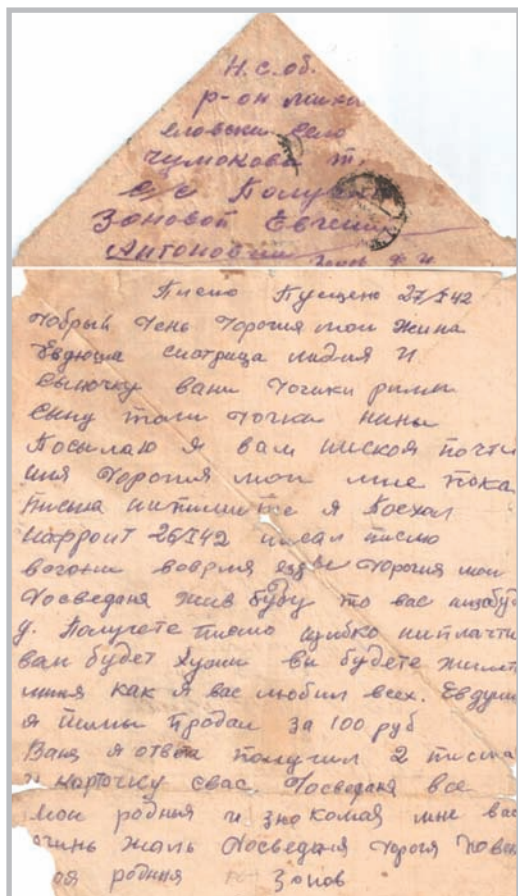 Н.С.об.
р-он миха
еловски село
чумокова т.
с/с Полуев
Зоновой Евгени
Антоновни
Зонов
Писмо Пущено 27/I 42
Добрый День Дорогия мои жина
Евдюша систрица лидия и
сыночку вани Дочики римы
сыну толи Дочка нины
Посылаю я вам ниской почти
ния Дорогия мои мне пока
писма нипишите я Поехал
нафронт 26/I 42 писал писмо
вогони вовремя езды Дорогия мои
Досведаня жив буду то вас низабу
у. Получете писмо шыбко ниплачти
вам будет Хужи вы будете жилет
миня как я вас любил всех. Евдуши
я пимы продал за 100 руб
Ваня я ответа получил 2 писма
и карточку свас. Досведаня все
мои родния и знокомая мне вас
очинь жаль Досведаня Дорогя
родния Зонов